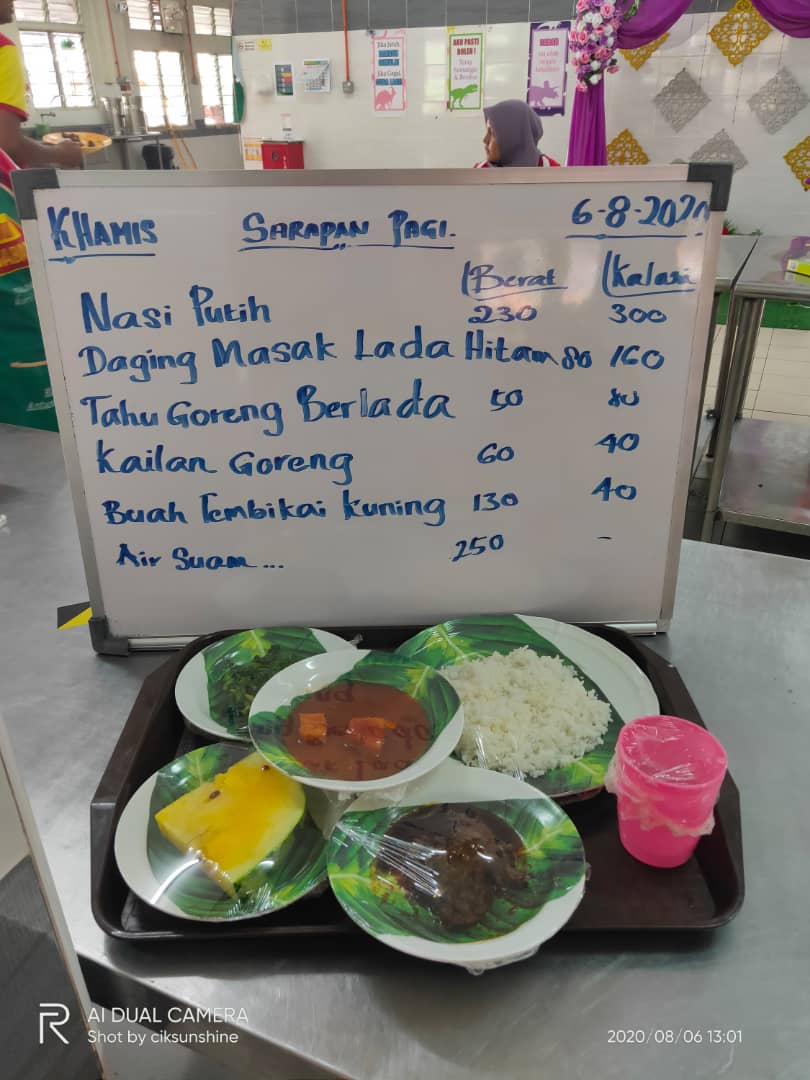 KHAMIS SARAPAN PAGI. 6-8-2020
Berat Kalari
Nasi Putih 230 300
Daging Masak Lada Hitam 80 160
Tahu Goreng Berlada 50 80
Kailan Goreng 60 40
Buah Tembikai Kuning 130 40
Air Suam... 250 -
AI DUAL CAMERA
Shot by ciksunshine
2020/08/06 13:01